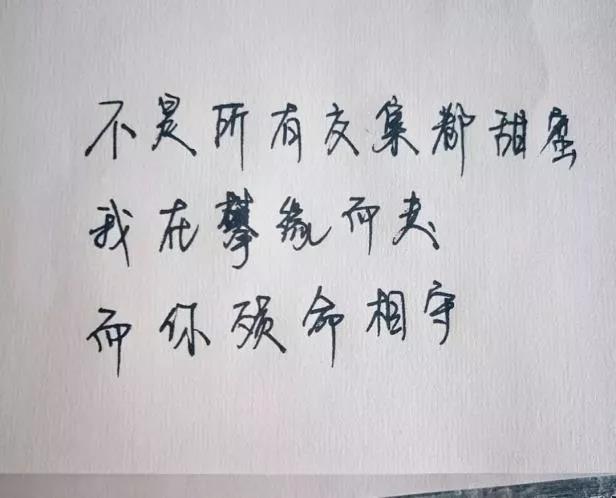 不是所有交集都甜蜜
我在攀缘而去
而你殒命相守